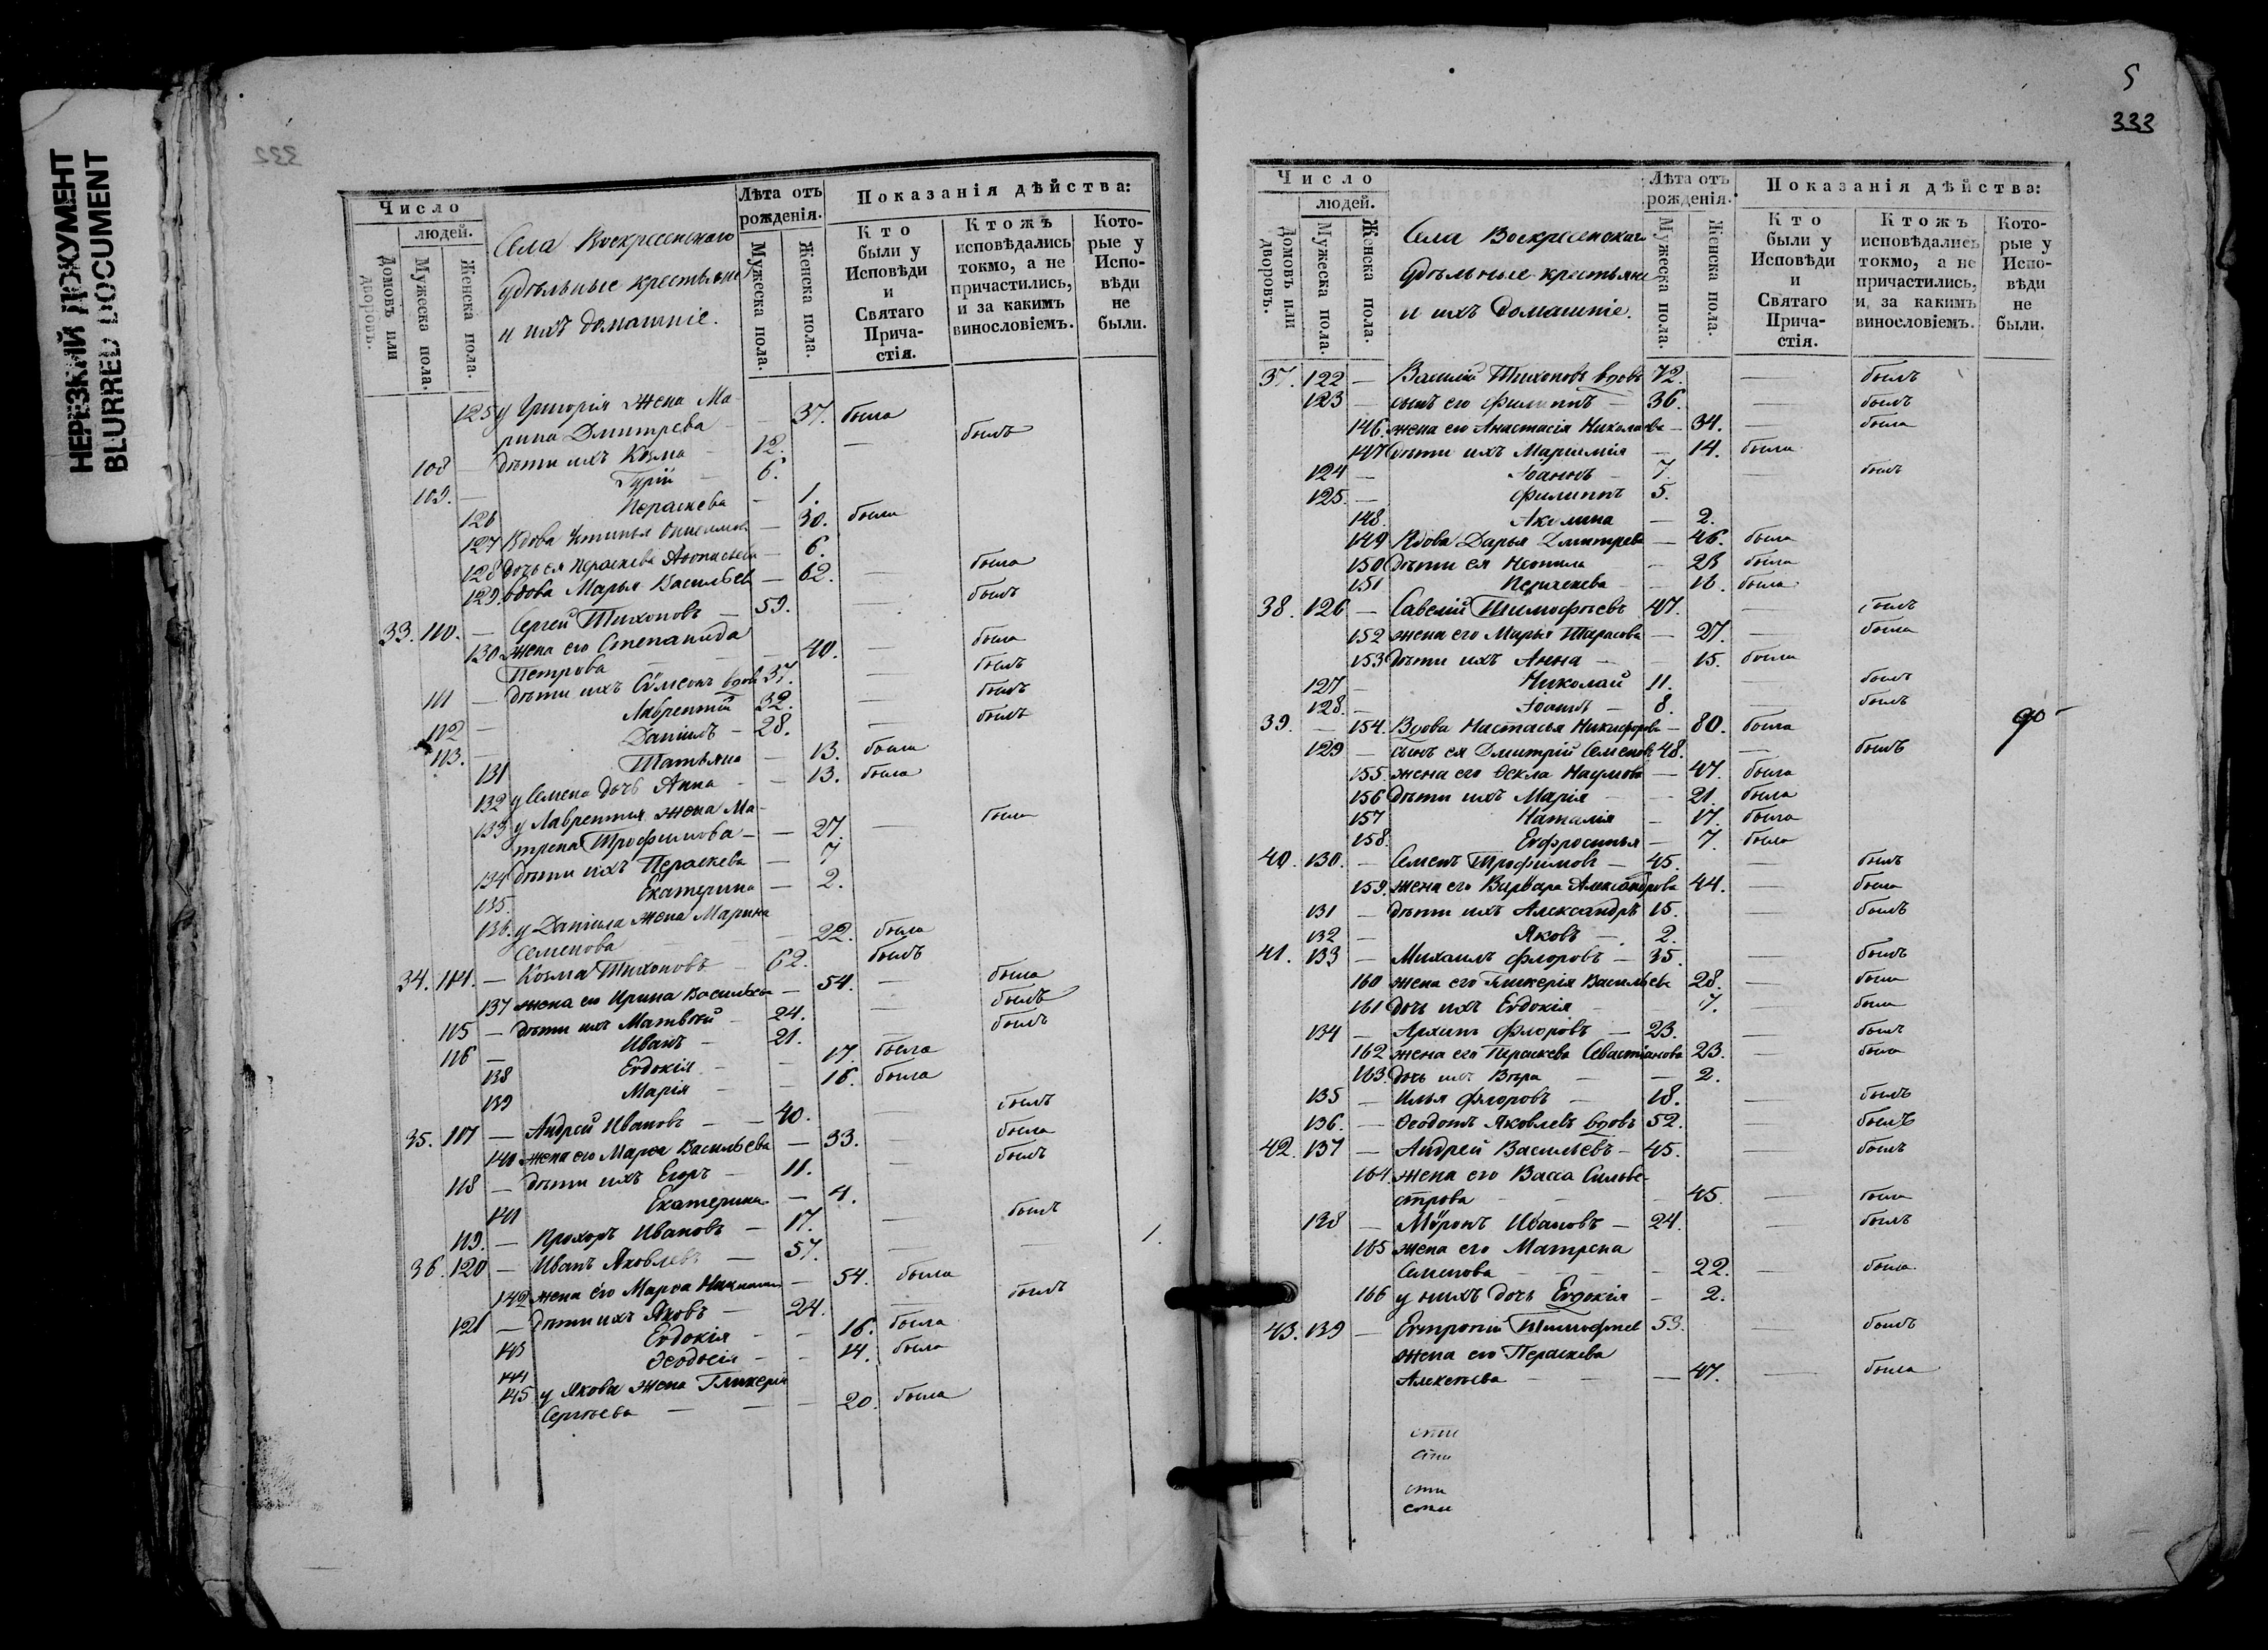 НЕРЕЗКИЙ ДОКУМЕНТ
BLURRED DOCUMENT
332
Число
людей.
Домовъ или дворовъ.
Мужеска пола.
Женска пола.
Села Воскресенскаго
удѣльные крестьяне
и ихъ домашніе.
Лѣта отъ рожденія.
Мужеска пола.
Женска пола.
Показанія дѣйства:
Кто были у Исповѣди и Святаго Причастія.
Ктожъ исповѣдались токмо, а не причастились, и за какимъ винословіемъ.
Которые у Исповѣди не были.
125 у Григорія жена Ма-
рина Дмитрева — 37. была
108 — дѣти ихъ Козма — 12. — былъ
109. — Гурій — 6.
126 Пераскева — 1.
127 Вдова — 30. была
128 дочь ея Пераскева — 6.
129. вдова Марья Васильев — 62. — была
33. 110. — Сергей Тихоновъ — 59. — былъ
130 жена его Степанида
Петрова — 40. — была
111 — дѣти ихъ Сѵмеонъ вдовъ 37. — былъ
112 — Лаврентій 32. — былъ
113. — Даніилъ — 28. — былъ
131 Татьяна — 13. была
132 у Семена дочь Анна — 13. была
133 у Лаврентия жена Ма-
трена Трофимова — 27. — была
134 дѣти ихъ Пераскева — 7
135. Екатерина — 2.
136. у Даніила жена Марина
Семенова — 22. была
34. 114. — Козма Тихоновъ — 62. былъ
137 жена его Ирина Васильева — 54. — была
115 — дѣти ихъ Матвѣй — 24. — былъ
116 — Иванъ — 21. — былъ
138 Евдокія — 17. была
139 Марія — 16. была
35. 117 — Андрей Ивановъ — 40. — былъ
140 жена его Марѳа Васильева — 33. — была
118 — дѣти ихъ Егоръ — 11. — былъ
141 Екатерина — 4.
119. — Прохоръ Ивановъ — 17. — былъ
36. 120 — Иванъ Яковлевъ — 57. — — 1.
142 жена его Марѳа — 54. была
121 — дѣти ихъ Яковъ — 24. — былъ
143 Евдокія — 16. была
144 Ѳеодосія — 14. была
145 у Якова жена Гликерія
Сергѣева — 20. была
5
333
Число
людей.
Домовъ или дворовъ.
Мужеска пола.
Женска пола.
Села Воскресенскаго
удѣльные крестьяне
и ихъ домашніе.
Лѣта отъ рожденія.
Мужеска пола.
Женска пола.
Показанія дѣйства:
Кто были у Исповѣди и Святаго Причастія.
Ктожъ исповѣдались токмо, а не причастились, и за какимъ винословіемъ.
Которые у Исповѣди не были.
37. 122 — Василій Тихоновъ вдовъ 72. — былъ
123 — сынъ его Филиппъ — 36. — былъ
146. жена его Анастасія Николаева — 34. — была
147 дѣти ихъ Маріамія — 14. была
124 — Іоаннъ — 7. былъ
125. — Филиппъ 5.
148. Акилина — 2.
149 Вдова Дарья Дмитрева — 46. была
150 дѣти ея Неонила — 28 была
151 Пераскева — 16. была
38. 126 — Савелій Тимофѣевъ 47. — былъ
152 жена его Марья Тарасова — 27. — была
153 дѣти ихъ Анна — 15. была
127 — Николай 11. — былъ
128. — Іоаннъ — 8. — былъ
39. — 154. Вдова Настасья Никифорова — 80. была
129 — сынъ ея Дмитрій Семеновъ 48. — былъ
155. жена его Ѳекла Наумова — 47. была
156 дѣти ихъ Марія — 21. была
157 Наталія — 17. была
158. Евфросинья — 7. была
40. 130. — Семенъ Трофимовъ — 45. — былъ
159. жена его Варвара Александрова 44. — была
131 — дѣти ихъ Александръ 15. — былъ
132 — Яковъ — 2.
41. 133 — Михаилъ Флоровъ — 35. — былъ
160 жена его Гликерія Васильева 28. — была
161 дочь ихъ Евдокія — 7. — была
134 — Архипъ Флоровъ — 23. — былъ
162 жена его Пераскева Севастіанова 23. — была
163. дочь ихъ Вѣра — 2.
135 — Илья Флоровъ — 18. — былъ
136. — Ѳеодотъ Яковлевъ вдовъ 52. — былъ
42. 137 — Андрей Васильевъ — 45. — былъ
164. жена его Васса Сильве-
строва — 45. — была
138 — Мѵронъ Ивановъ — 24. — былъ
165 жена его Матрена
Семенова — 22. — была
166 у нихъ дочь Евдокія — 2.
43. 139 — Евтропій Тимофѣев 53. — былъ
жена его Пераскева
Алексѣева — 47. — была